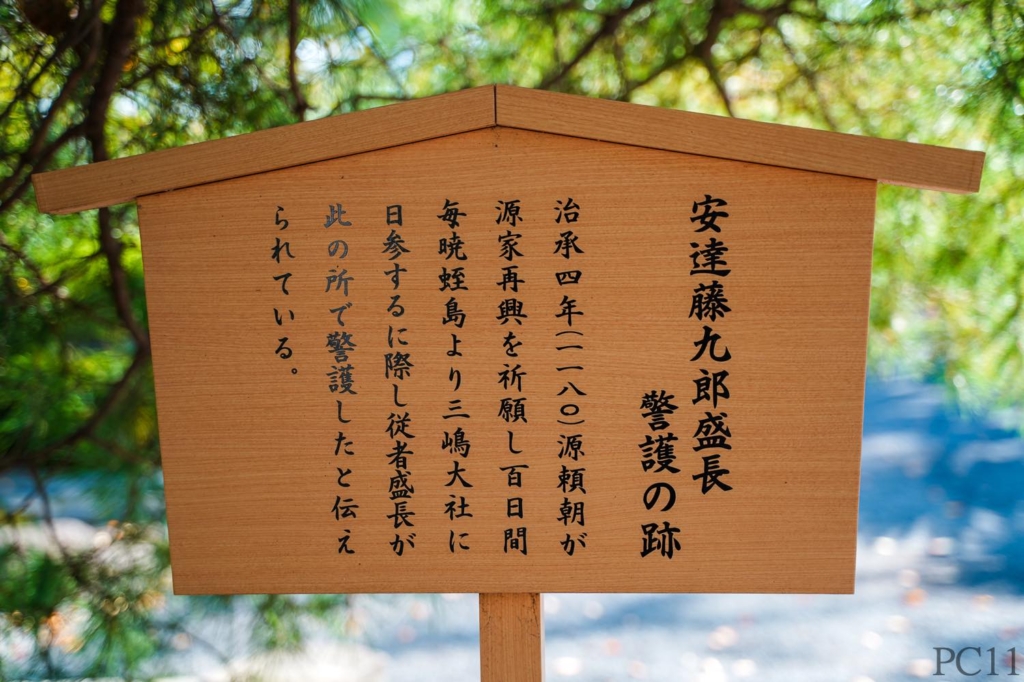 安達藤九郎盛長
警護の跡
治承四年(一一八〇)源頼朝が
源家再興を祈願し百日間
毎暁蛭島より三嶋大社に
日参するに際し従者盛長が
此の所で警護したと伝え
られている。
PC11